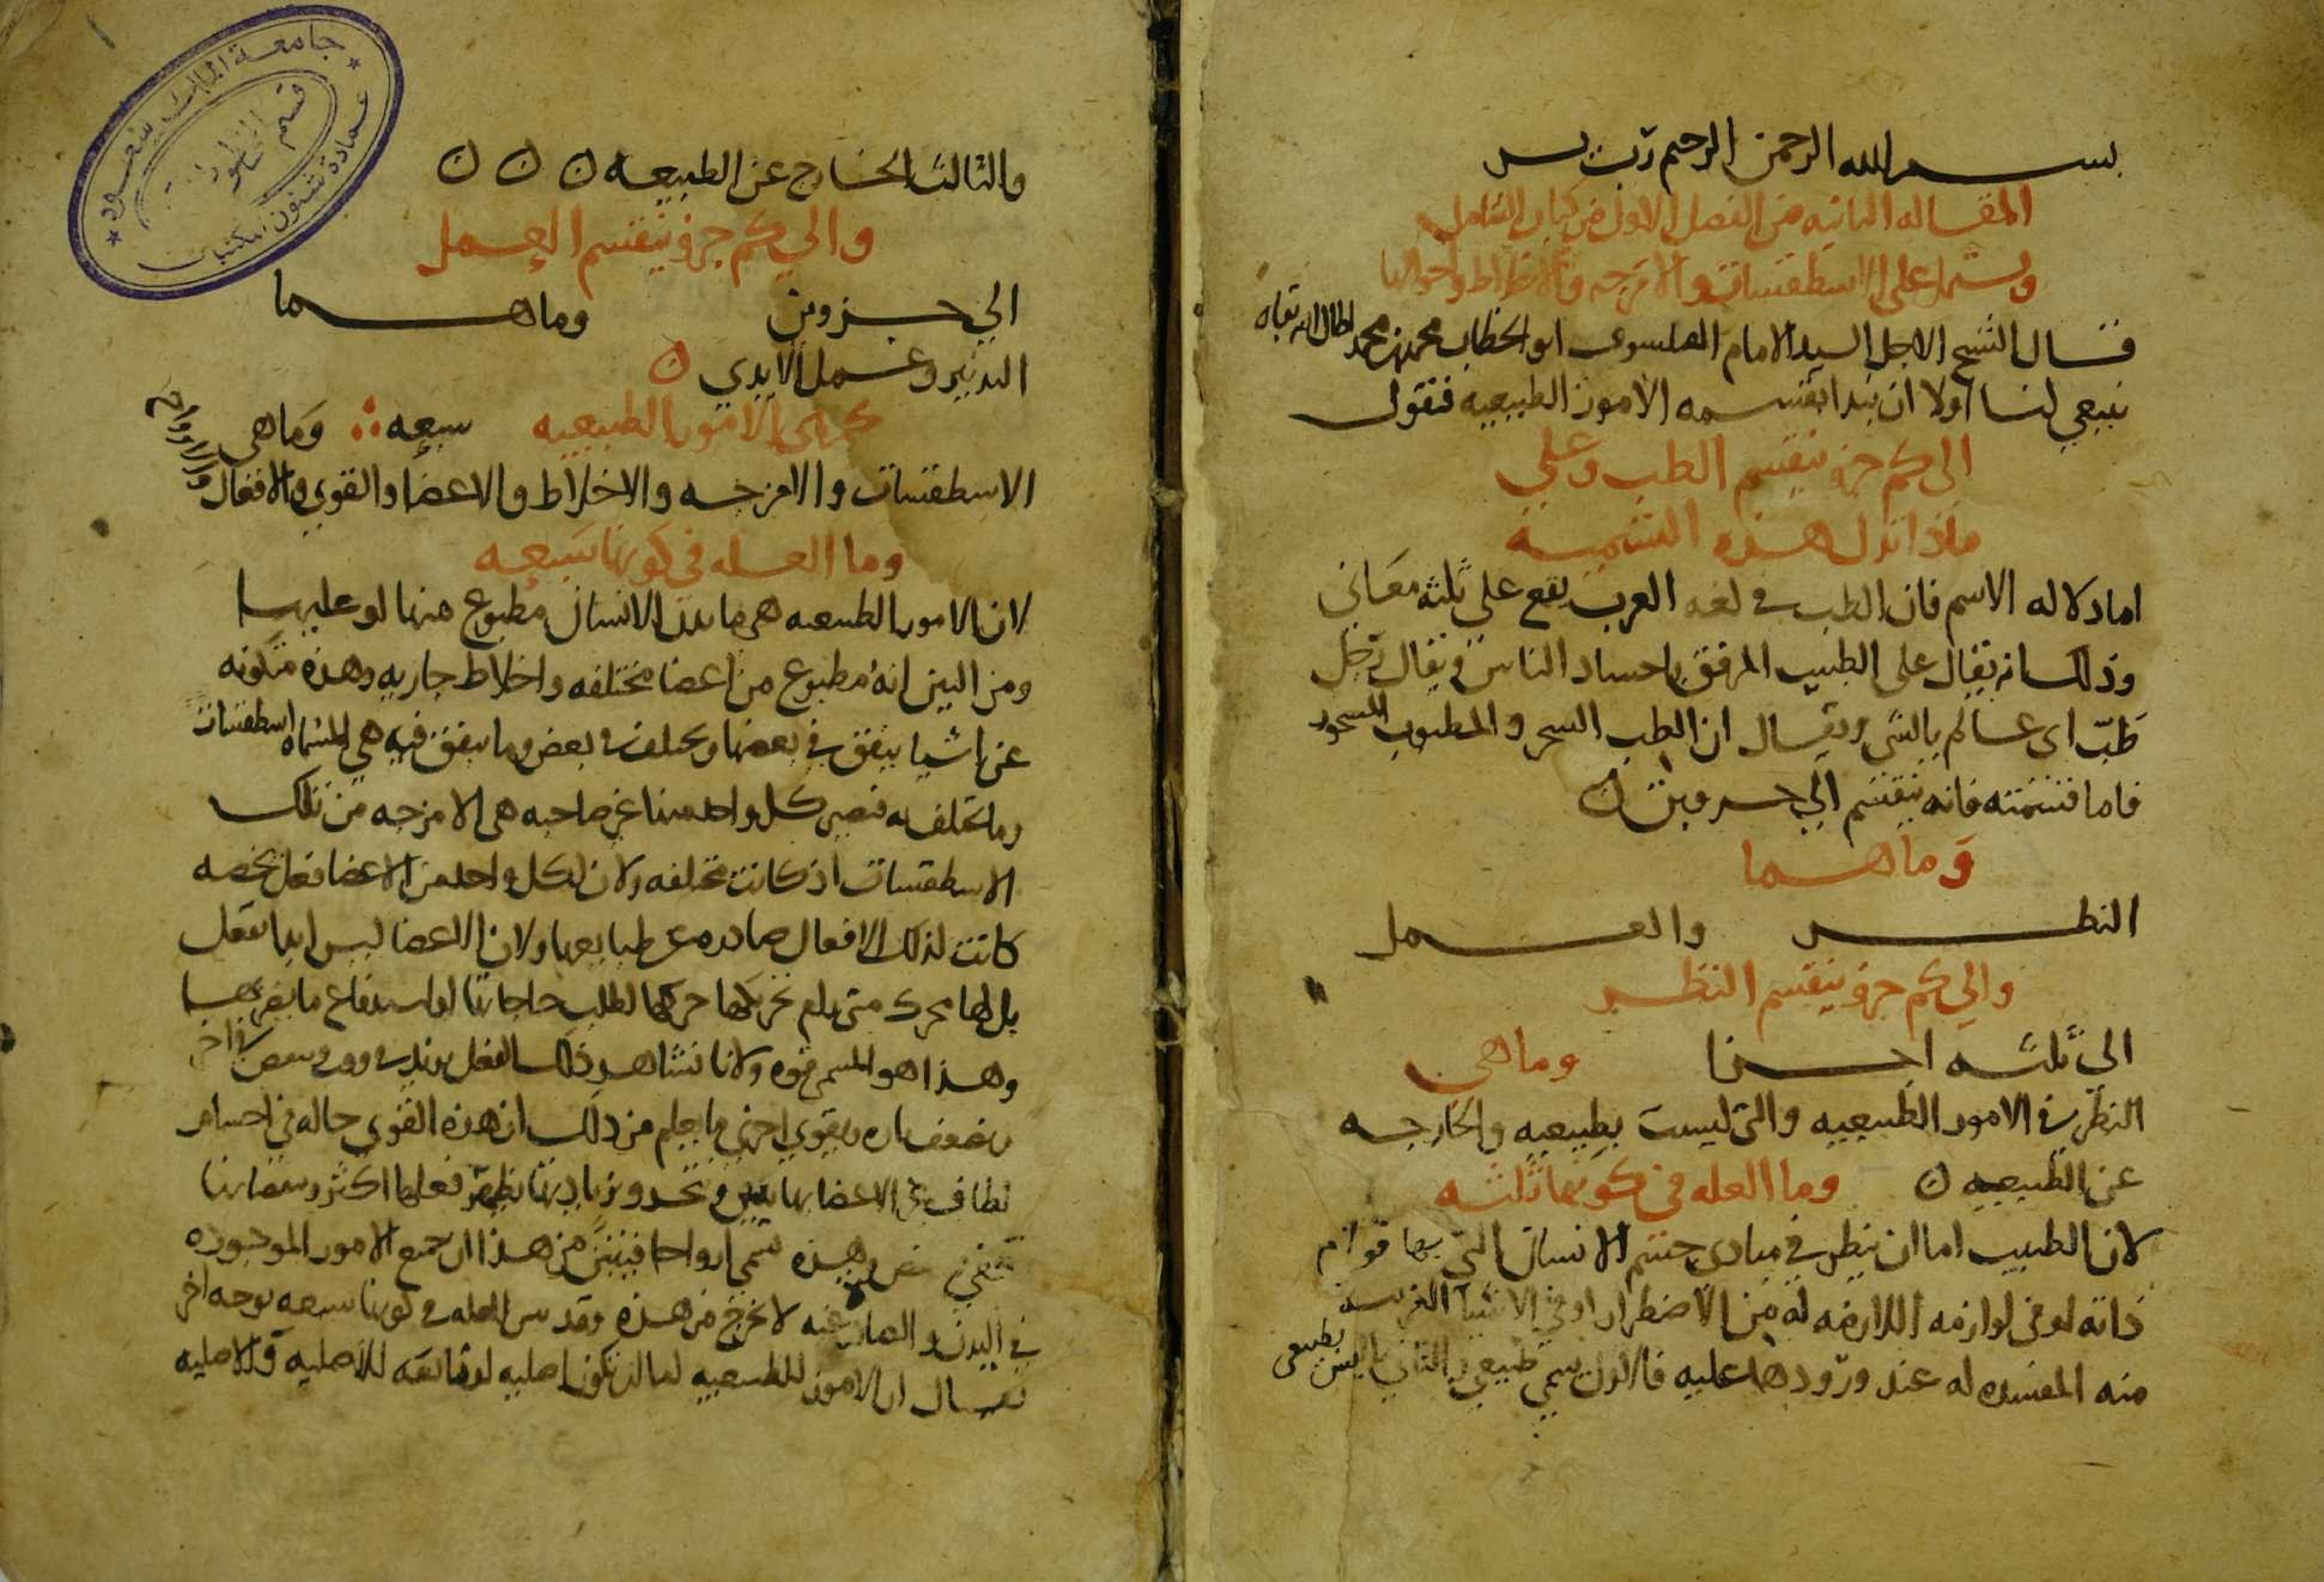 بسم الله الرحمن الرحيم رب يسر
المقاله الثانيه من الفصل الاول من كتاب الشامل
ويشتمل على الاسطقسات والامزجه والاخلاط واحوالها
قال الشيخ الاجل السيد الامام الفيلسوف ابو الخطاب محمد بن محمد اطال الله بقاه
ينبغي لنا اولا ان نبدا بقسمه الامور الطبيعيه فنقول
الى كم جزو ينقسم الطب وعلى
ماذا تدل هذه التسميه
اما دلاله الاسم فان الطب في لغه العرب يقع على ثلثه معاني
وذلك انه يقال على الطبيب المرفق باجساد الناس ويقال رجل
طب اى عالم بالشي ويقال ان الطب السحر والمطبوب المسحور
فاما قسمته فانه ينقسم الي جزوين ن
وما هما
النظر والعمل
والي كم جزو ينقسم النظر
الى ثلثه اجزا وما هى
النظر في الامور الطبيعيه والتى ليست بطبيعيه والخارجه
عن الطبيعيه ن وما العله في كونها ثلثه
لان الطبيب اما ان ينظر في مبادى جسم الانسان التى بها قوام
ذاته او في لوازمه اللازمه له من الاضطرار او في الاشيا الغريبه
منه المفسده له عند ورودها عليه فالاول يسمي طبيعي والثاني ليس بطبيعى
والثالث الخارج عن الطبيعه ن ن ن
والي كم جزو ينقسم العمل
الي جزوين وما هما
التدبير وعمل الايدي ن
كم هى الامور الطبيعيه سبعه وما هى
الاسطقسات والامزجه والاخلاط والاعضا والقوي والافعال والارواح
وما العله في كونها سبعه
لان الامور الطبيعيه هى ما بدن الانسان مطبوع منها او عليها
ومن البين انه مطبوع من اعضا مختلفه واخلاط جاريه وهذه متكونه
عن اشيا يتفق في بعضها ويختلف في بعض وما يتفق فيه هي المسماه اسطقسات
وما تختلف به فيصير كل واحد منها غير صاحبه هى الامزجه من تلك
الاسطقسات اذ كانت مختلفه ولان لكل واحد من الاعضا فعل يخصه
كانت لذلك الافعال صادره عن طبايعها ولان الاعضا ليس ابدا تفعل
بل لها محرك متى رام تحريكها حركها لطلب حاجاتنا او لاستدفاع ما يضر بها
وهذا هو المسمى قوه ولانا نشاهد ذلك الفعل يزيد في وقت وينقص في اخر
ويضعف تاره ويقوي اخرى ما يعلم من ذلك ان هذه القوى حاله في اجسام
لطاف في الاعضا بها
هذه تسمي ارواحا فيتبين من هذا ان جميع الامور الموجوده
في البدن لا تخرج من هذه وقد تبين العله في كونها سبعه بوجه اخر
يقال ان الامور الطبيعيه اما ان تكون اصليه او تابعه للاصليه والاصليه
جامعة الملك سعود
عمادة شئون المكتبات
قسم المخطوطات